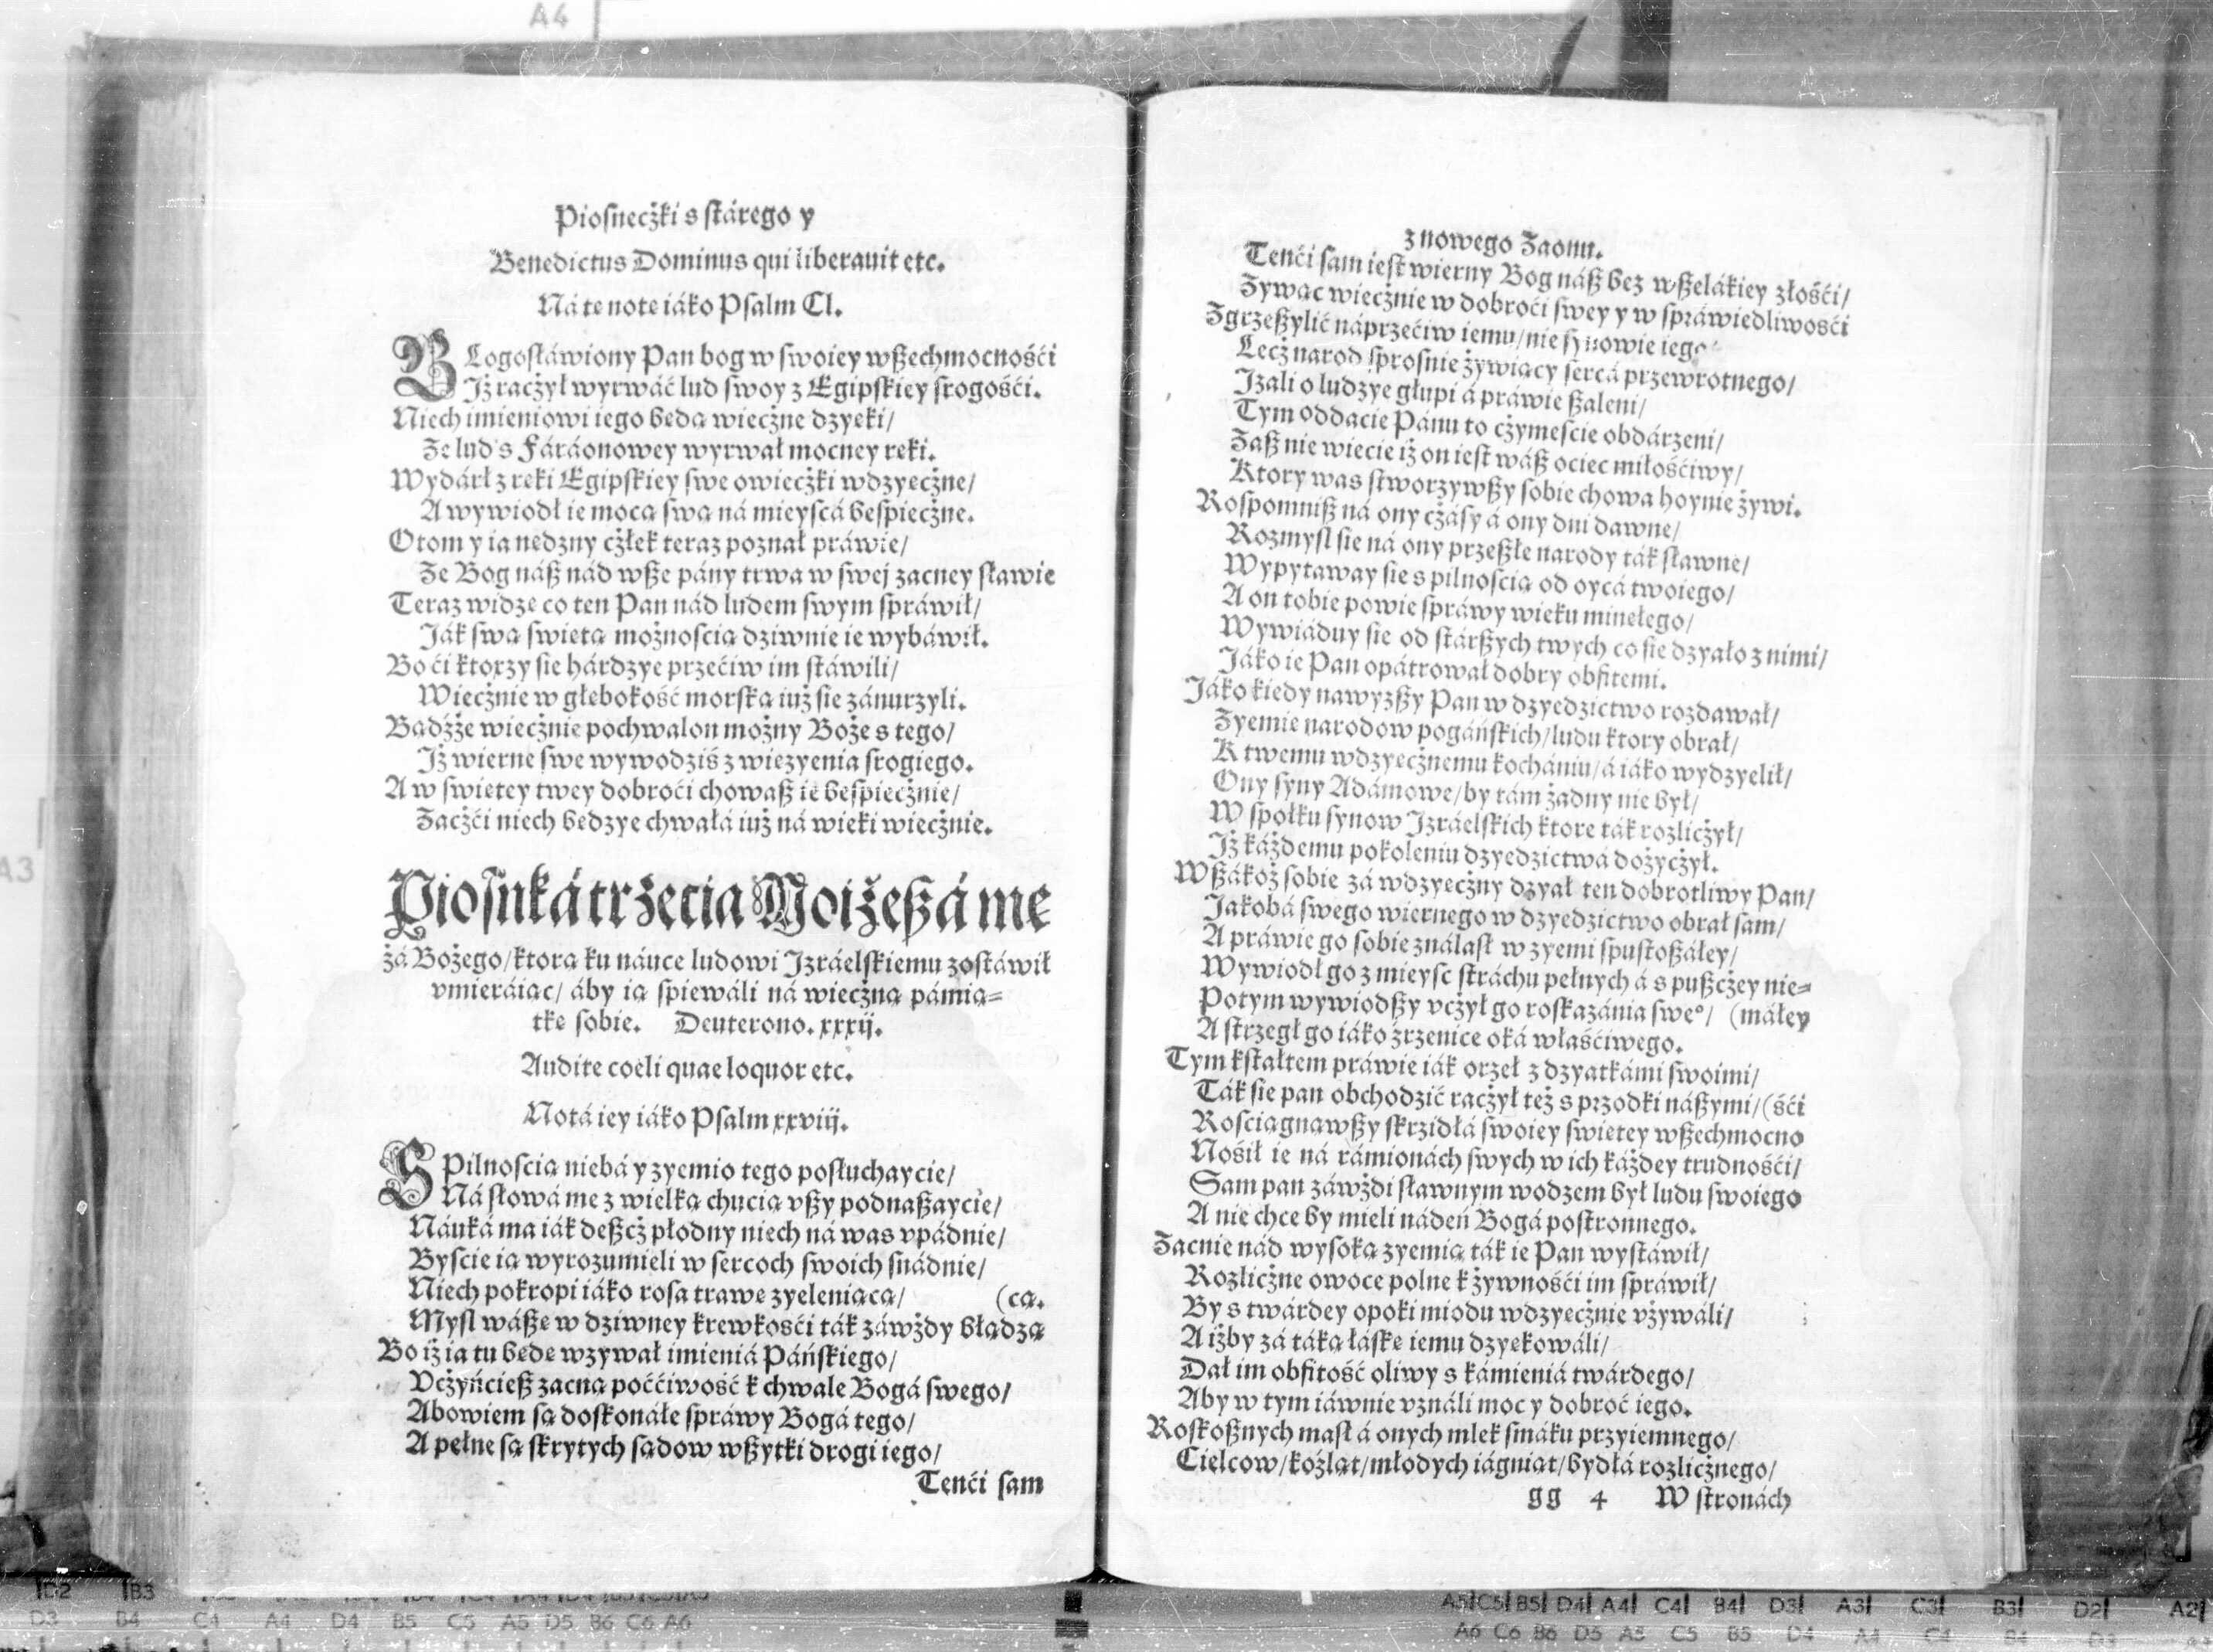 A4
Piosnecżki s stárego y
Benedictus Dominus qui liberauit etc.
Ná te note iáko Psalm CI.
BLogosłáwiony Pan bog w swoiey wßechmocnośći
Jż racżył wyrwáć lud swoy z Egipskiey srogośći.
Niech imieniowi iego beda wiecżne dzyeki/
Ze lud s Fáráonowey wyrwał mocney reki.
Wydárł z reki Egipskiey swe owiecżki wdzyecżne/
A wywiodł ie mocą swą ná mieyscá bespiecżne.
Otom y ia nedzny cżłek teraz poznał práwie/
Ze Bog náß nád wße pány trwa w swej zacney sławie
Teraz widze co ten Pan nád ludem swym spráwił/
Ják swą swietą możnoscią dziwnie ie wybáwił.
Bo ći ktorzy sie hárdzye przećiw im stáwili/
Wiecżnie w głebokość morską iuż sie zánurzyli.
Bądźże wiecżnie pochwalon możny Boże s tego/
Jż wierne swe wywodziś z wiezyenia srogiego.
A w swietey twey dobroći chowaß ie bespiecżnie/
Zacżći niech bedzye chwałá iuż ná wieki wiecżnie.
Piosnká trżecia Moiżeßá me
żá Bożego/ ktorą ku náuce ludowi Jzráelskiemu zostáwił
vmieráiąc/ áby ią spiewáli ná wiecżną pámią=
tke sobie. Deuterono. xxxij.
Audite coeli quae loquor etc.
Notá iey iáko Psalm xxviij.
SPilnoscią niebá y zyemio tego posłuchaycie/
Ná słowá me z wielką chucią vßy podnaßaycie/
Náuká ma iák deßcż płodny niech ná was vpádnie/
Byscie ią wyrozumieli w sercoch swoich snádnie/
Niech pokropi iáko rosa trawe zyeleniącą/ (cą.
Mysl wáße w dziwney krewkośći ták záwżdy błądzą
Bo iż ia tu bede wzywał imieniá Páńskiego/
Vcżyńcieß zacną poććiwość k chwale Bogá swego/
Abowiem są doskonáłe spráwy Bogá tego/
A pełne są skrytych sądow wßytki drogi iego/
Tenći sam
z nowego Zaonu.
Tenći sam iest wierny Bog náß bez wßelákiey złośći/
Zywąc wiecżnie w dobroći swey y w spráwiedliwosći
Zgrzeßylić náprzećiw iemu/ nie synowie iego
Lecż narod sprosnie żywiący sercá przewrotnego/
Jzali o ludzye głupi á práwie ßaleni/
Tym oddacie Pánu to cżymescie obdárzeni/
Zaß nie wiecie iż on iest wáß ociec miłośćiwy/
Ktory was stworzywßy sobie chowa hoynie żywi.
Rospomniß ná ony cżásy á ony dni dawne/
Rozmysl sie ná ony przeßłe narody ták sławne/
Wypytaway sie s pilnoscią od oycá twoiego/
A on tobie powie spráwy wieku minełego/
Wywiáduy sie od stárßych twych co sie dzyało z nimi/
Jáko ie Pan opátrował dobry obfitemi.
Jáko kiedy nawyzßy Pan w dzyedzictwo rozdawał/
Zyemie narodow pogáńskich/ ludu ktory obrał/
K twemu wdzyecżnemu kochániu/ á iáko wydzyelił/
Ony syny Adámowe/ by tám żadny nie był/
W społku synow Jzráelskich ktore ták rozlicżył/
Jż káżdemu pokoleniu dzyedzictwá dożycżył.
Wßákoż sobie zá wdzyecżny dzyał ten dobrotliwy Pan/
Jakobá swego wiernego w dzyedzictwo obrał sam/
A práwie go sobie ználasł w zyemi spustoßáłey/
Wywiodł go z mieysc stráchu pełnych á s pußcżey nie=
Potym wywiodßy vcżył go roskazánia swe°/ (máłey
A strzegł go iáko źrzenice oká właśćiwego.
Tym kstałtem práwie iák orzeł z dzyatkámi swoimi/
Ták sie pan obchodzić racżył też s przodki náßymi/ (śći
Rosciągnąwßy skrzidłá swoiey swietey wßechmocno
Nośił ie ná rámionách swych w ich káżdey trudnośći/
Sam pan záwżdi sławnym wodzem był ludu swoiego
A nie chce by mieli nádeń Bogá postronnego.
Zacnie nád wysoką zyemią ták ie Pan wystáwił/
Rozlicżne owoce polne k żywnośći im spráwił/
By s twárdey opoki miodu wdzyecżnie vżywáli/
A iżby zá táką łáske iemu dzyekowáli/
Dał im obfitość oliwy s kámieniá twárdego/
Aby w tym iáwnie vználi moc y dobroć iego.
Roskoßnych masł á onych mlek smáku przyiemnego/
Cielcow/ koźląt/ młodych iágniąt/ bydłá rozlicżnego/
gg 4 W stronách